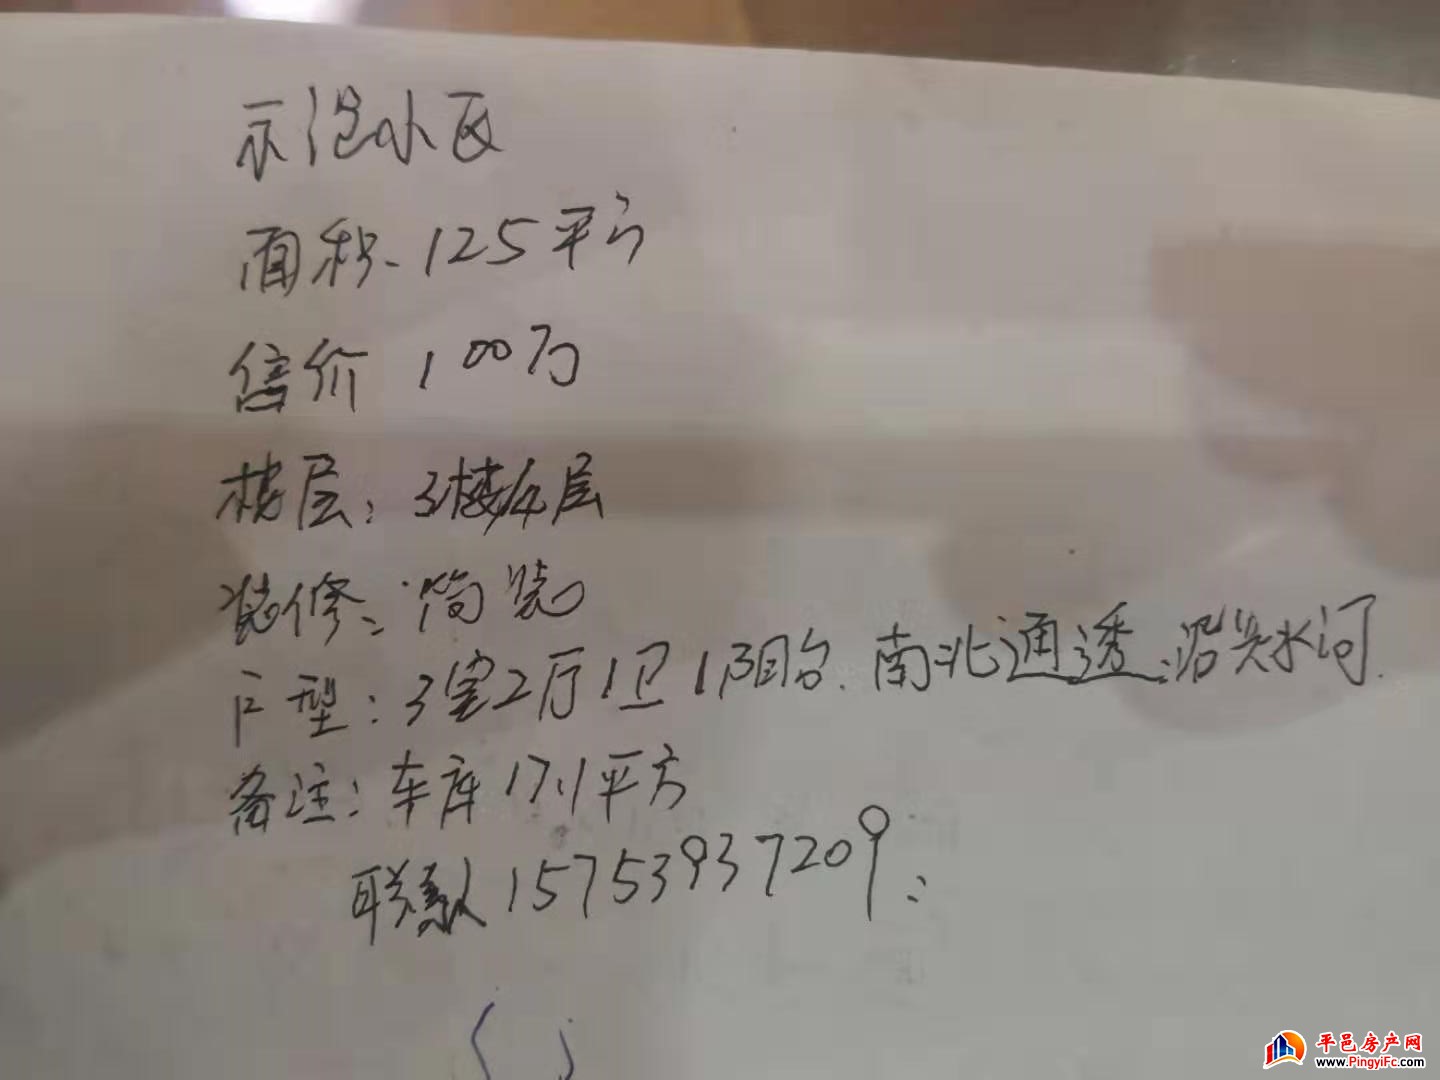 示范小区
面积、125平方
售价 100万
楼层：3楼/4层
装修：简装
户型：3室2厅1卫1阳台、南北通透、沿浚水河.
备注：车库17.1平方
联系 15753937209
平邑房产网
www.PingyiFc.com